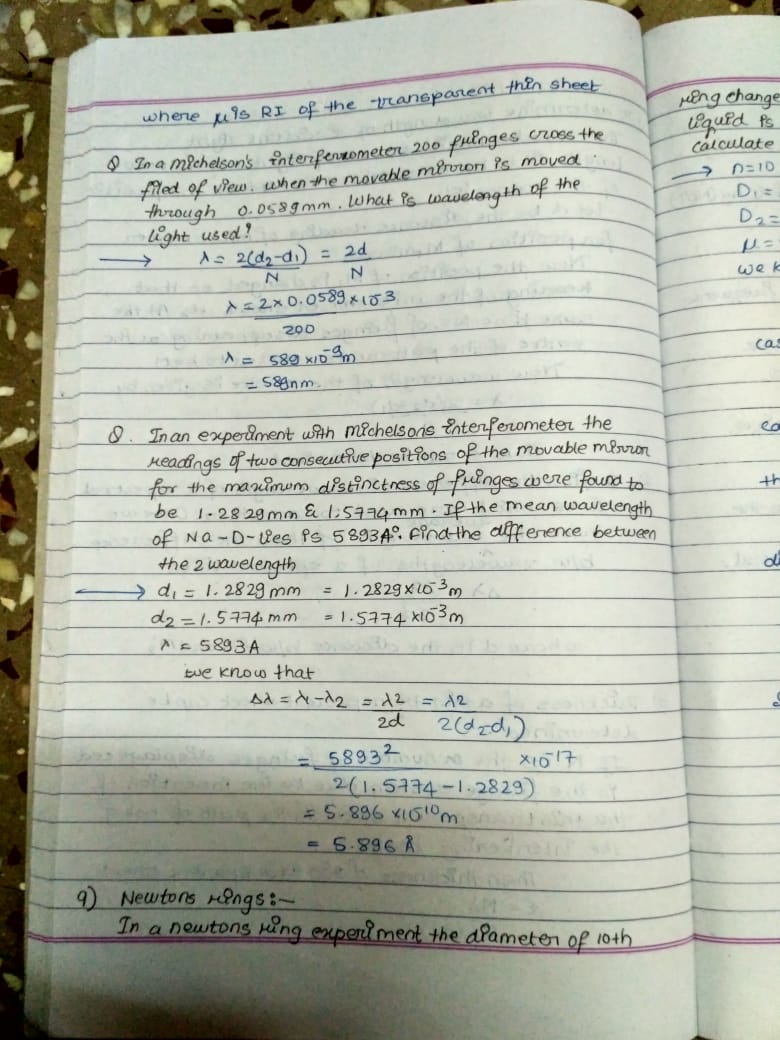 where μ is RI of the transparent thin sheet
Q In a michelson's interferrometer 200 fringes cross the
filed of view. when the movable mirror is moved
through 0.0589mm. What is wavelength of the
light used?
→ λ = 2(d₂-d₁)/N = 2d/N
λ = 2×0.0589×10⁻³/200
λ = 589 ×10⁻⁹m
= 589nm.
Q. In an experiment with michelsons interferometer the
readings of two consecutive positions of the movable mirror
for the maximum distinctness of fringes were found to
be 1.2829mm & 1.5774mm. If the mean wavelength
of Na-D-lies is 5893A°. Find the difference between
the 2 wavelength
→ d₁ = 1.2829 mm = 1.2829×10⁻³m
d₂ = 1.5774 mm = 1.5774 ×10⁻³m
λ = 5893A
we know that
Δλ = λ₁-λ₂ = λ2/2d = λ2/2(d₂-d₁)
= 5893²/2(1.5774-1.2829) ×10⁻¹⁷
= 5.896 ×10¹⁰m
= 5.896 Å
9) Newtons rings:-
In a newtons ring experiment the diameter of 10th
ring change
liquid is
calculate
→ n=10
D₁ =
D₂ =
μ =
we k
cas
th